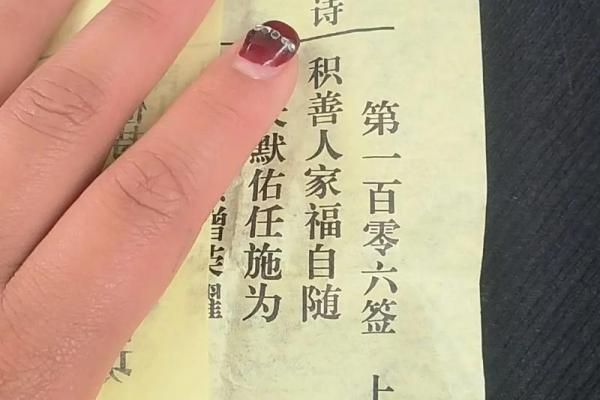 诗
第一百零六签 上
积善人家福自随
默佑任施为
增荣耀